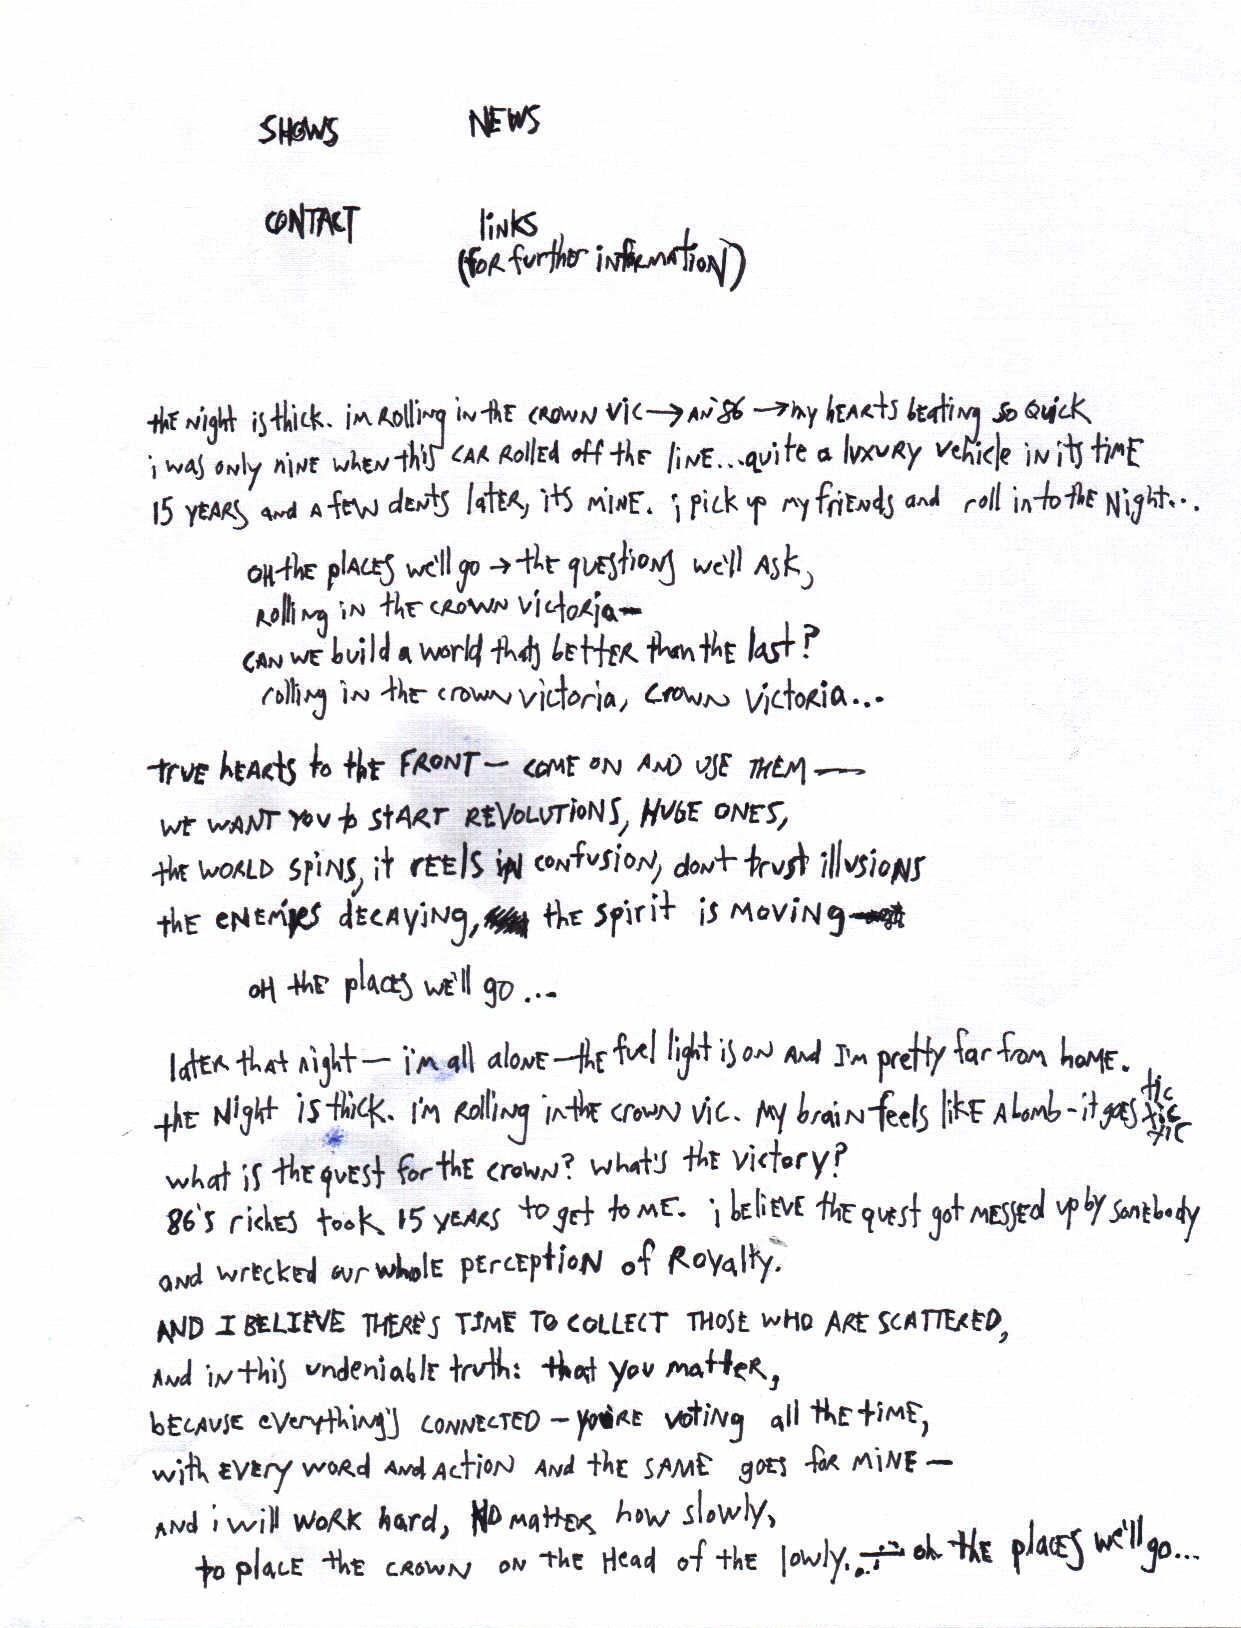 SHOWS NEWS
CONTACT links
(for further information)
the night is thick. im rolling in the crown vic → an '86 → my hearts beating so quick
i was only nine when this car rolled off the line... quite a luxury vehicle in its time
15 years and a few dents later, its mine. i pick up my friends and roll into the night...
oh the places we'll go → the questions we'll ask,
rolling in the crown victoria—
can we build a world thats better than the last?
rolling in the crown victoria, crown victoria...
true hearts to the FRONT — COME ON AND USE THEM —
WE WANT YOU to START REVOLUTIONS, HUGE ONES,
the WORLD spins, it reels in confusion, dont trust illusions
the enemies decaying, the spirit is moving
oh the places we'll go...
later that night — i'm all alone — the fuel light is on and I'm pretty far from home.
the Night is thick. I'm rolling in the crown vic. My brain feels like a bomb - it goes tic
tic
tic
what is the quest for the crown? what's the victory?
86's riches took 15 years to get to me. i believe the quest got messed up by somebody
and wrecked our whole perception of Royalty.
AND I BELIEVE THERE'S TIME TO COLLECT THOSE WHO ARE SCATTERED,
And in this undeniable truth: that you matter,
because everything's CONNECTED — you're voting all the time,
with every word and action and the same goes for mine —
and i will work hard, NO matter how slowly,
to place the crown on the Head of the lowly. oh the places we'll go...